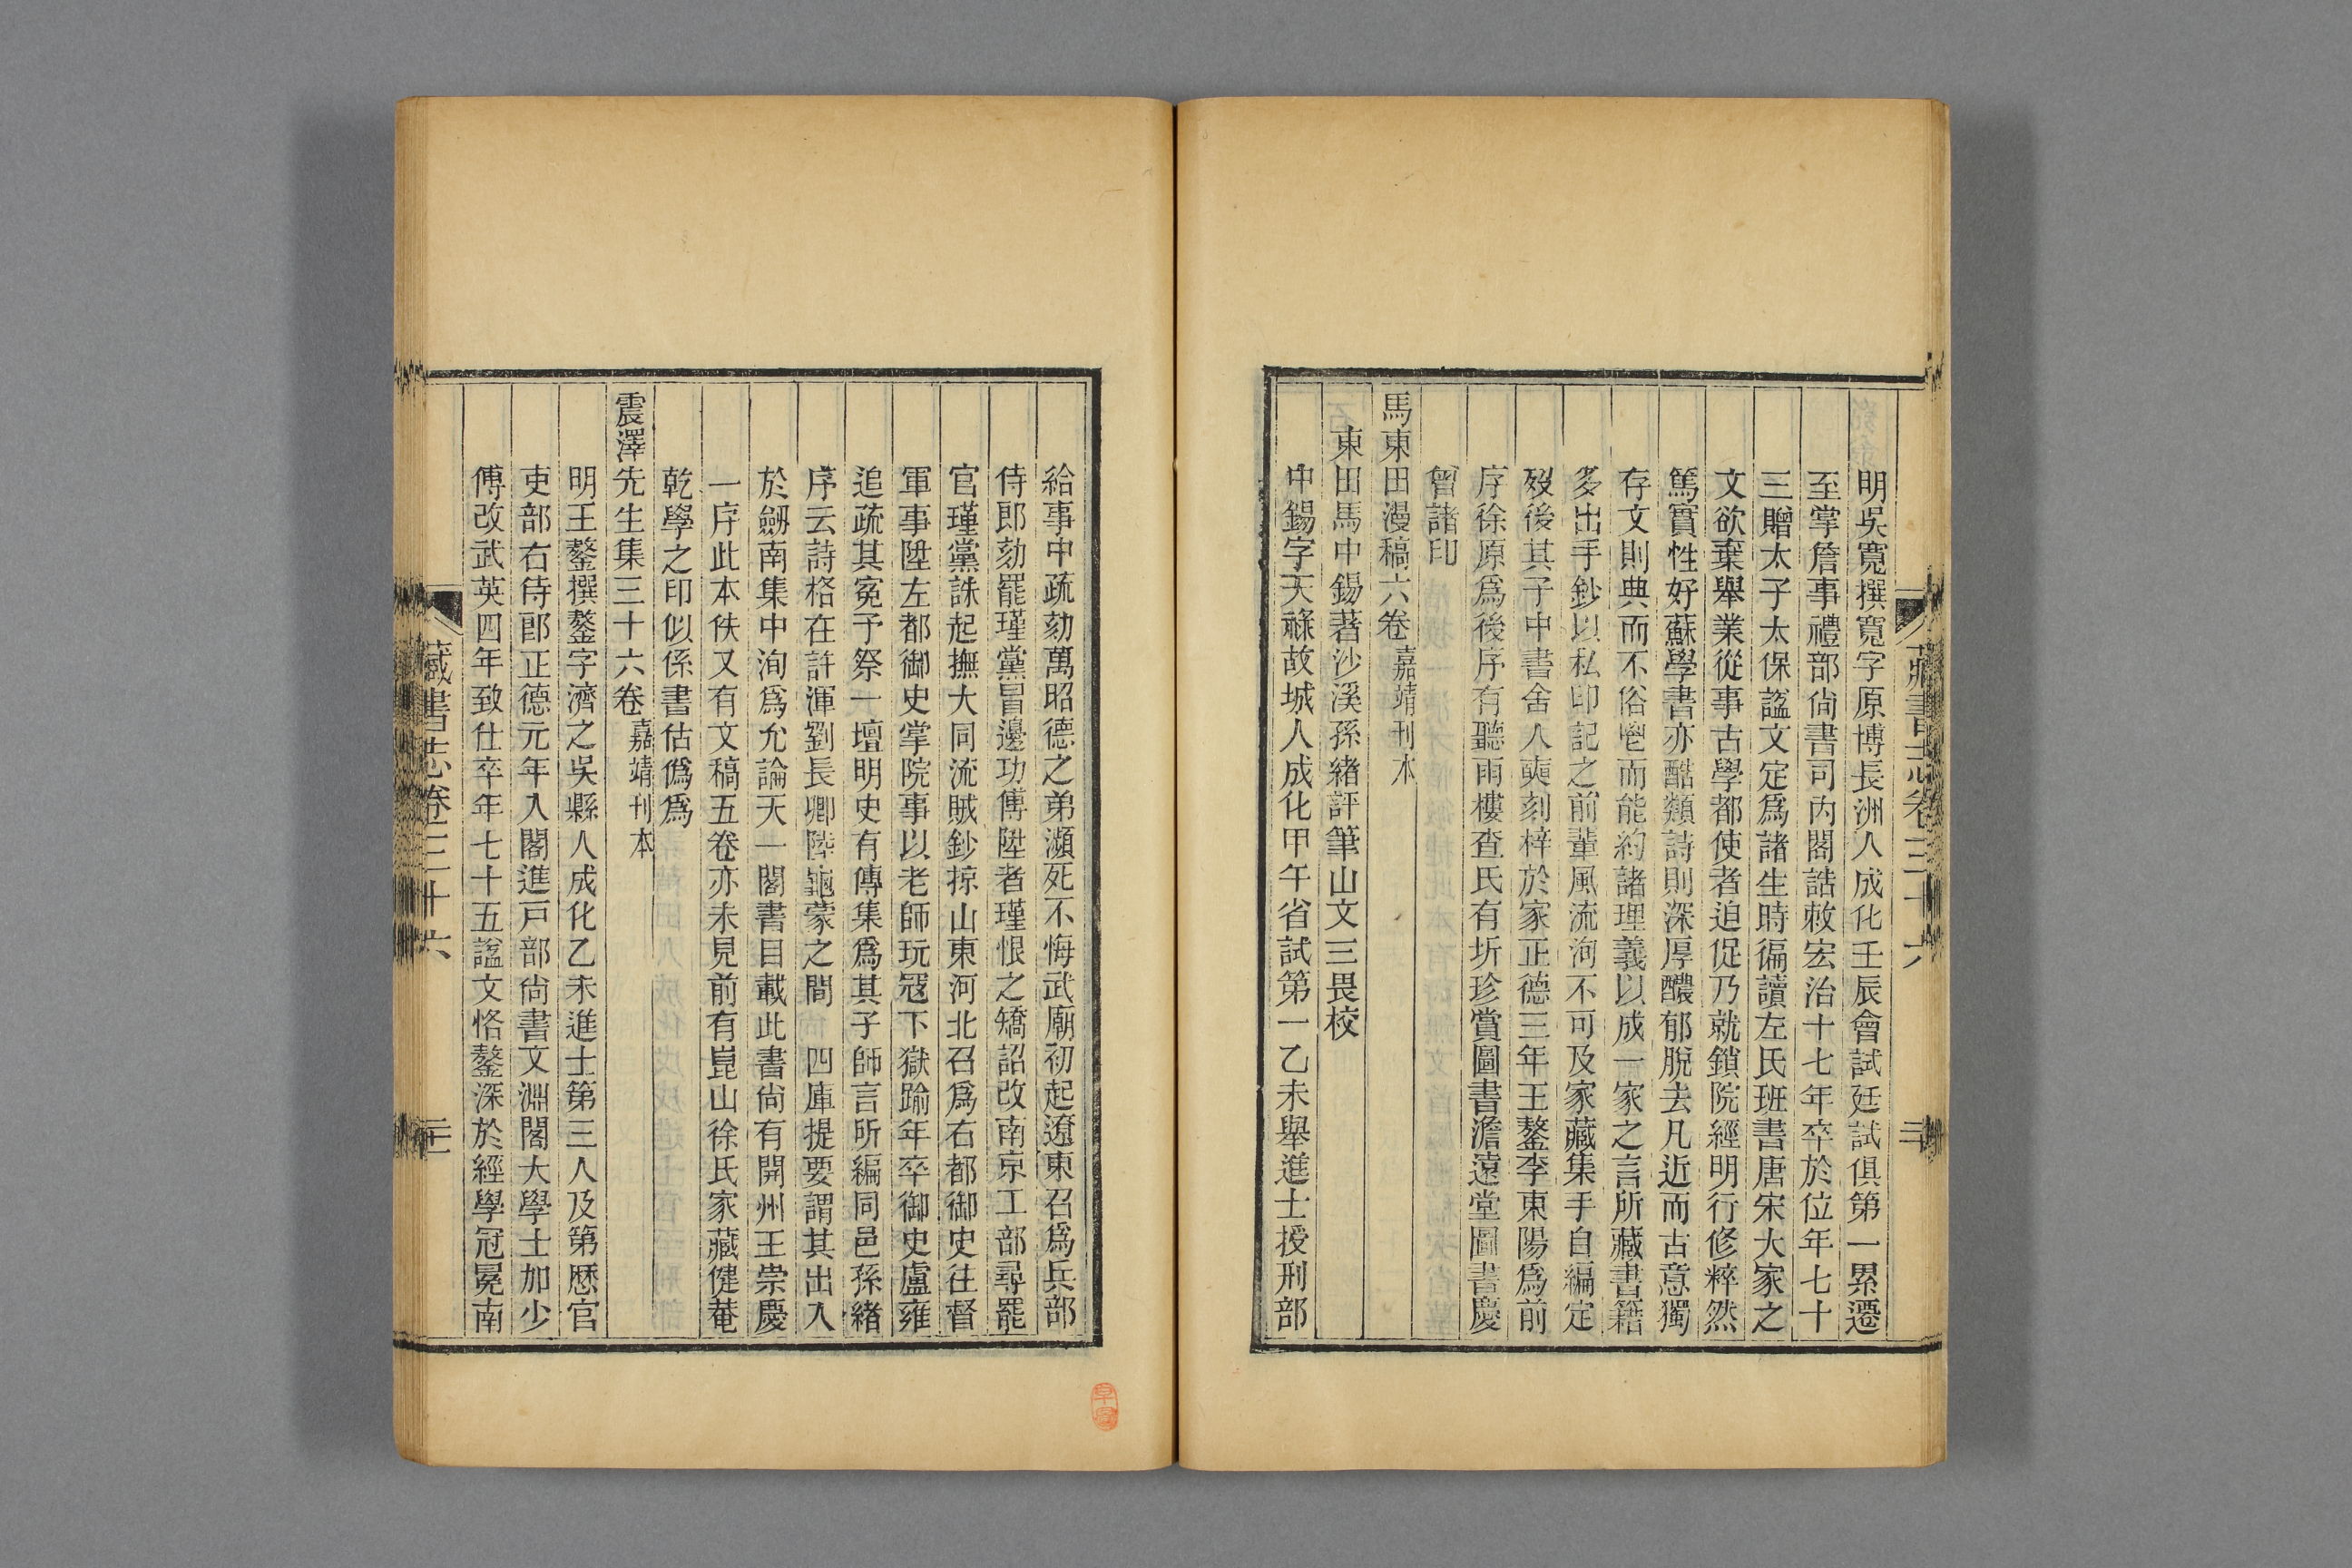 藏書志卷三十六
二十
明吳寬撰寬字原博長洲人成化壬辰會試廷試俱第一累遷
至掌詹事禮部尚書司內閣誥敕宏治十七年卒於位年七十
三贈太子太保諡文定爲諸生時徧讀左氏班書唐宋大家之
文欲棄舉業從事古學都使者迫促乃就鎖院經明行修粹然
篤實性好蘇學書亦酷類詩則深厚醲郁脫去凡近而古意獨
存文則典而不俗鬯而能約諸理義以成一家之言所藏書籍
多出手鈔以私印記之前輩風流洵不可及家藏集手自編定
歿後其子中書舍人奭刻梓於家正德三年王鏊李東陽爲前
序徐原爲後序有聽雨樓查氏有圻珍賞圖書澹遠堂圖書慶
曾諸印
馬東田漫稿六卷嘉靖刊本
東田馬中錫著沙溪孫緒評筆山文三畏校
中錫字天祿故城人成化甲午省試第一乙未舉進士授刑部
給事中疏劾萬昭德之弟瀕死不悔武廟初起遼東召爲兵部
侍郎劾罷瑾黨冒邊功傅陞者瑾恨之矯詔改南京工部尋罷
官瑾黨誅起撫大同流賊鈔掠山東河北召爲右都御史往督
軍事陞左都御史掌院事以老師玩寇下獄踰年卒御史盧雍
追疏其冤予祭一壇明史有傳集爲其子師言所編同邑孫緒
序云詩格在許渾劉長卿陸龜蒙之間四庫提要謂其出入
於劒南集中洵爲允論天一閣書目載此書尙有開州王崇慶
一序此本佚又有文稿五卷亦未見前有崑山徐氏家藏健菴
乾學之印似係書估僞爲
震澤先生集三十六卷嘉靖刊本
明王鏊撰鏊字濟之吳縣人成化乙未進士第三人及第歷官
吏部右侍郎正德元年入閣進戶部尙書文淵閣大學士加少
傅改武英四年致仕卒年七十五諡文恪鏊深於經學冠冕南
藏書志卷三十六